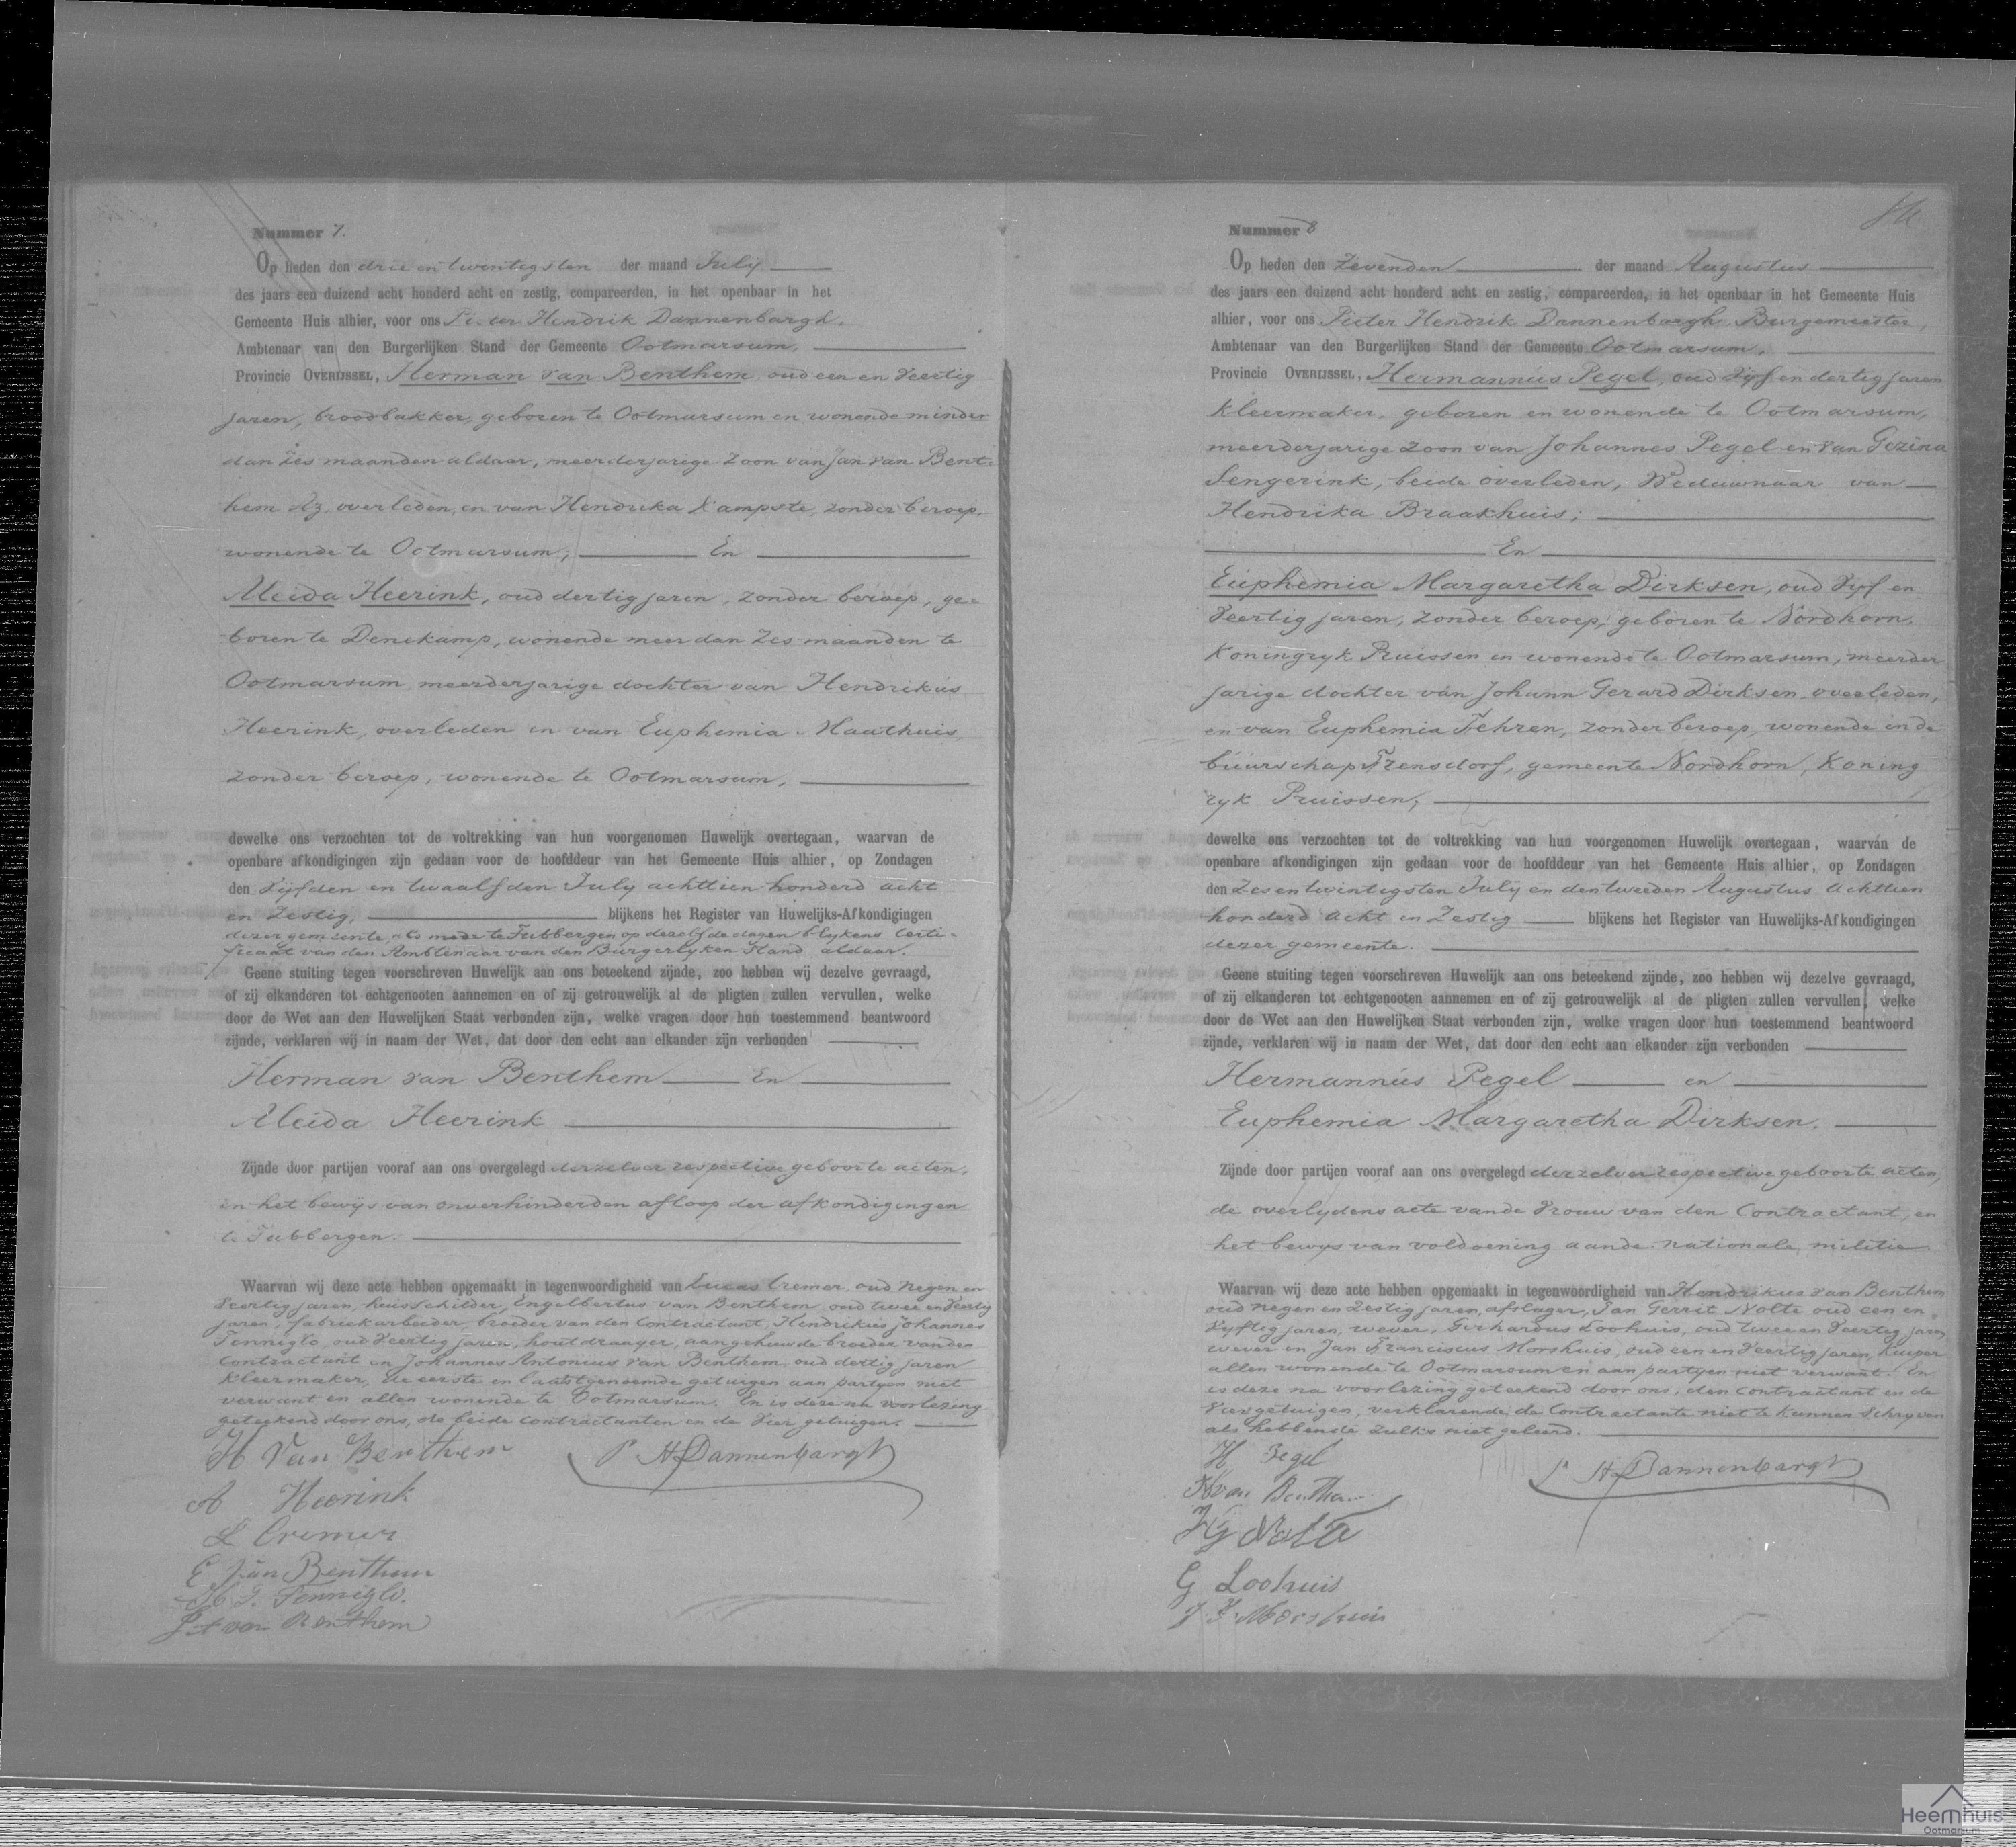 Nummer 7.
Op heden den drie en twintigsten der maand July
des jaars een duizend acht honderd acht en zestig, compareerden, in het openbaar in het
Gemeente Huis alhier, voor ons Pieter Hendrik Dannenbargh.
Ambtenaar van den Burgerlijken Stand der Gemeente Ootmarsum,
Provincie OVERIJSSEL, Herman van Benthem oud een en veertig
jaren, broodbakker, geboren te Ootmarsum en wonende minder
dan zes maanden aldaar, meerderjarige zoon van Jan van Bent-
hem Az, overleden, en van Hendrika Kampste, zonder beroep,
wonende te Ootmarsum; En
Aleida Heerink, oud dertig jaren, zonder beroep, ge-
boren te Denekamp, wonende meer dan zes maanden te
Ootmarsum meerderjarige dochter van Hendrikus
Heerink, overleden en van Euphemia Maathuis,
zonder beroep, wonende te Ootmarsum,
dewelke ons verzochten tot de voltrekking van hun voorgenomen Huwelijk overtegaan, waarvan de
openbare afkondigingen zijn gedaan voor de hoofddeur van het Gemeente Huis alhier, op Zondagen
den vijfden en twaalfden July achttien honderd acht
en zestig, blijkens het Register van Huwelijks-Afkondigingen
dezer gemeente, als mede te Tubbergen op dezelfde dagen blykens Certi-
ficaat van den Ambtenaar van den Burgerlyken Stand aldaar.
Geene stuiting tegen voorschreven Huwelijk aan ons beteekend zijnde, zoo hebben wij dezelve gevraagd,
of zij elkanderen tot echtgenooten aannemen en of zij getrouwelijk al de pligten zullen vervullen, welke
door de Wet aan den Huwelijken Staat verbonden zijn, welke vragen door hun toestemmend beantwoord
zijnde, verklaren wij in naam der Wet, dat door den echt aan elkander zijn verbonden
Herman van Benthem En
Aleida Heerink
Zijnde door partijen vooraf aan ons overgelegd derzelver respective geboorte acten,
en het bewijs van onverhinderden afloop der afkondigingen
te Tubbergen.
Waarvan wij deze acte hebben opgemaakt in tegenwoordigheid van Lucas Cremer oud negen en
veertig jaren, huisschilder, Engelbertus van Benthem oud twee en veertig
jaren, fabriekarbeider, broeder van den Contractant, Hendrikus Johannes
Tenniglo, oud veertig jaren, houtdraager, aangehuwde broeder van den
Contractant en Johannes Antonius van Benthem oud dertig jaren
Kleermaker, de eerste en laatstgenoemde getuigen aan partyen niet
verwant en allen wonende te Ootmarsum. En is deze na voorlezing
geteekend door ons, de beide contractanten en de vier getuigen.
H Van Benthem P H Dannenbargh
A Heerink
L Cremer
E van Benthem
H J. Tenniglo.
J A van Benthem
Nummer 8
Op heden den Zevenden der maand Augustus
des jaars een duizend acht honderd acht en zestig, compareerden, in het openbaar in het Gemeente Huis
alhier, voor ons Pieter Hendrik Dannenbargh Burgemeester,
Ambtenaar van den Burgerlijken Stand der Gemeente Ootmarsum,
Provincie OVERIJSSEL, Hermannus Pegel, oud vyf en dertig jaren
Kleermaker, geboren en wonende te Ootmarsum,
meerderjarige zoon van Johannes Pegel en van Gezina
Sengerink, beide overleden, Weduwnaar van
Hendrika Braakhuis;
En
Euphemia Margaretha Dirksen, oud vyf en
veertig jaren, zonder beroep, geboren te Nordhorn,
Koningryk Pruissen en wonende te Ootmarsum, meerder
jarige dochter van Johann Gerard Dirksen, overleden,
en van Euphemia Fehren, zonder beroep, wonende in de
buurschap Frensdorf, gemeente Nordhorn, Koning
ryk Pruissen,
dewelke ons verzochten tot de voltrekking van hun voorgenomen Huwelijk overtegaan, waarvan de
openbare afkondigingen zijn gedaan voor de hoofddeur van het Gemeente Huis alhier, op Zondagen
den Zesentwintigsten July en den tweeden Augustus Achttien
honderd acht en Zestig blijkens het Register van Huwelijks-Afkondigingen
dezer gemeente.
Geene stuiting tegen voorschreven Huwelijk aan ons beteekend zijnde, zoo hebben wij dezelve gevraagd,
of zij elkanderen tot echtgenooten aannemen en of zij getrouwelijk al de pligten zullen vervullen, welke
door de Wet aan den Huwelijken Staat verbonden zijn, welke vragen door hun toestemmend beantwoord
zijnde, verklaren wij in naam der Wet, dat door den echt aan elkander zijn verbonden
Hermannus Pegel en
Euphemia Margaretha Dirksen.
Zijnde door partijen vooraf aan ons overgelegd derzelver respective geboorte acten,
de overlydens acte vande Vrouw van den Contractant, en
het bewys van voldoening aande nationale militie.
Waarvan wij deze acte hebben opgemaakt in tegenwoordigheid van Hendrikus van Benthem
oud negen en zestig jaren, afslager, Jan Gerrit Nolte oud een en
vyftig jaren, wever, Gerhardus Loohuis, oud twee en veertig jaren
wever en Jan Franciscus Morshuis, oud een en veertig jaren, kuiper
allen wonende te Ootmarsum en aan partyen niet verwant. En
is deze na voorlezing geteekend door ons, den contractant en de
vier getuigen, verklarende de Contractante niet te kunnen schryven
als hebbende zulks niet geleerd.
H Pegel P H Dannenbargh
H van Benthem
J G Nolte
G Loohuis
J F Morshuis
Heemhuis
Ootmarsum